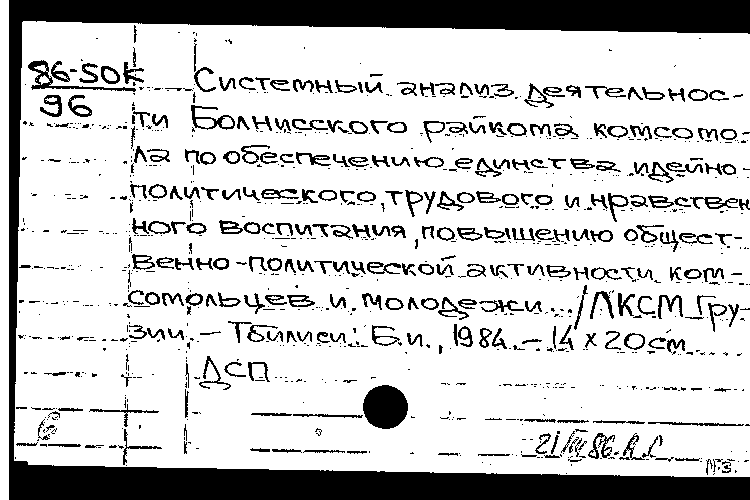 86-50К
96
Системный анализ деятельнос-
ти Болнисского райкома комсомо-
ла по обеспечению единства идейно-
политического, трудового и нравствен
ного воспитания, повышению общест-
венно-политической активности ком-
сомольцев и молодежи.../ЛКСМ Гру-
зии. – Тбилиси: Б.и., 1984. – 14 x 20 см.
ДСП
6
N.3.